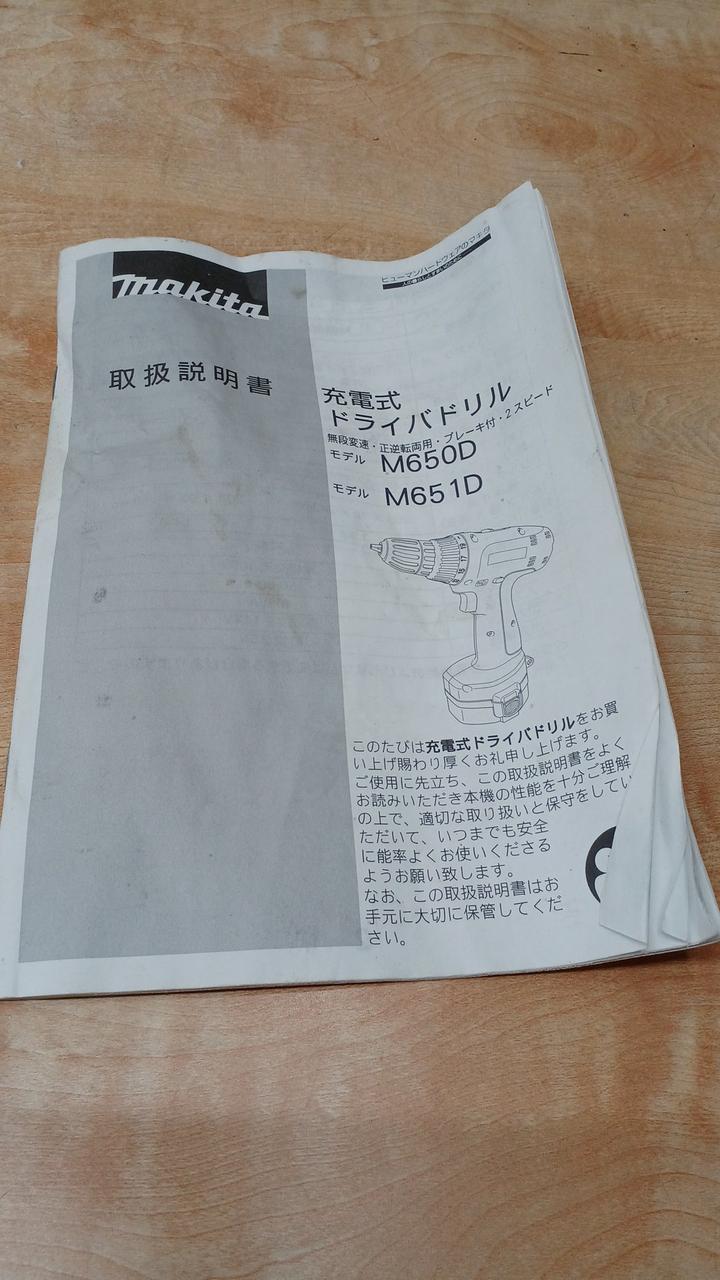 makita
ヒューマンハートウェアのマキタ
人の暮らしとすまいのために
取扱説明書
充電式
ドライバドリル
無段変速・正逆転両用・ブレーキ付・2スピード
モデル M650D
モデル M651D
このたびは充電式ドライバドリルをお買
い上げ賜わり厚くお礼申し上げます。
ご使用に先立ち、この取扱説明書をよく
お読みいただき本機の性能を十分ご理解
の上で、適切な取り扱いと保守をしてい
ただいて、いつまでも安全
に能率よくお使いくださる
ようお願い致します。
なお、この取扱説明書はお
手元に大切に保管してくだ
さい。